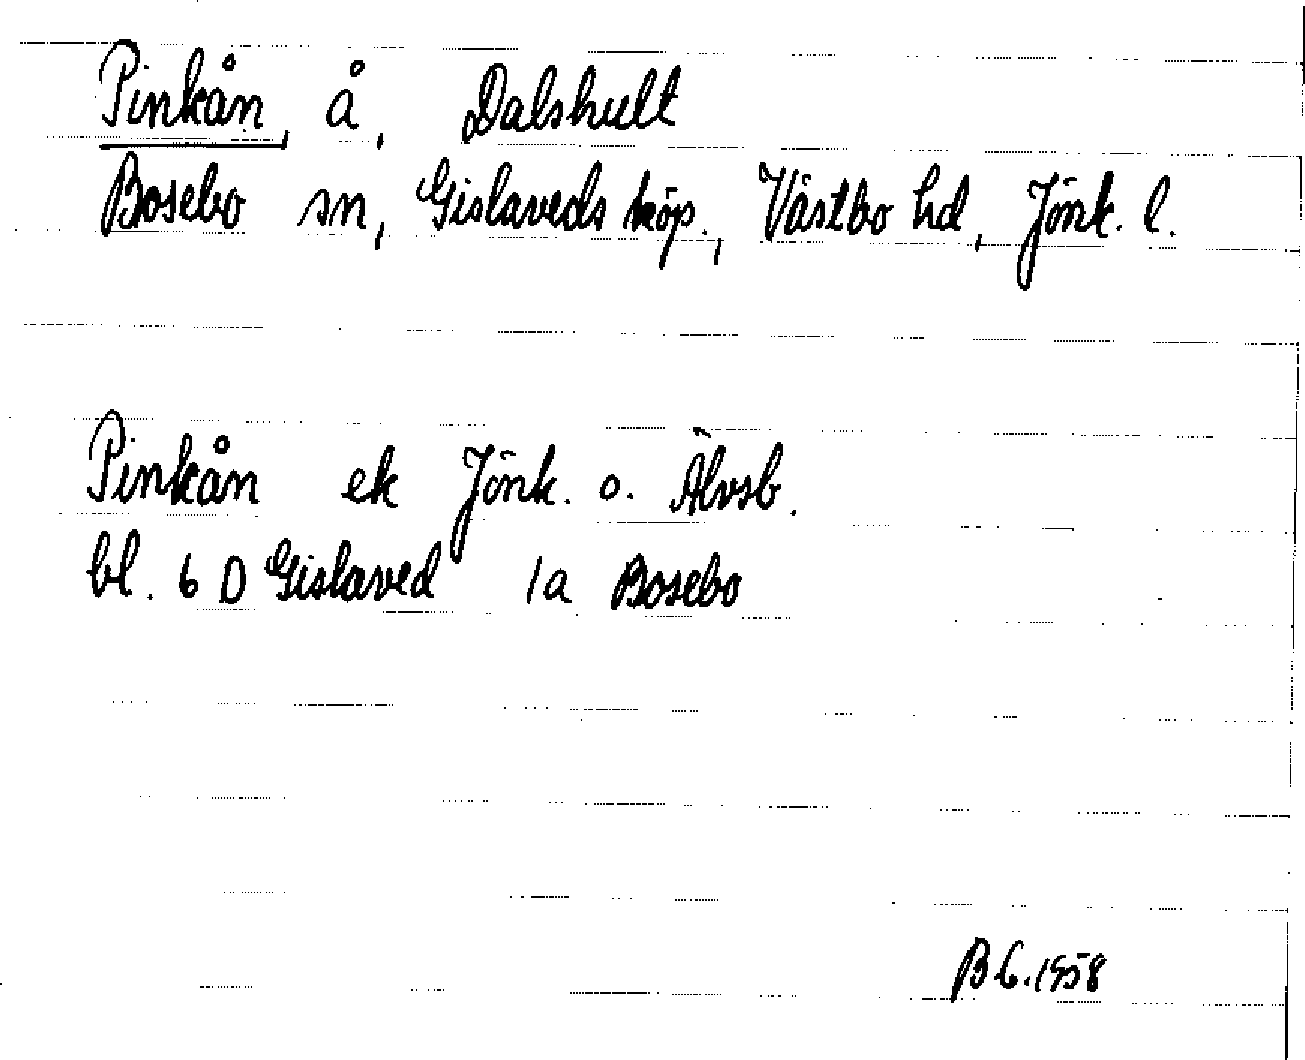 Pinkån, å, Dalshult
Bosebo sn, Gislaveds köp., Västbo hd, Jönk. l.
Pinkån ek Jönk. o. Älvsb.
bl. 6 D Gislaved 1a Bosebo
1958